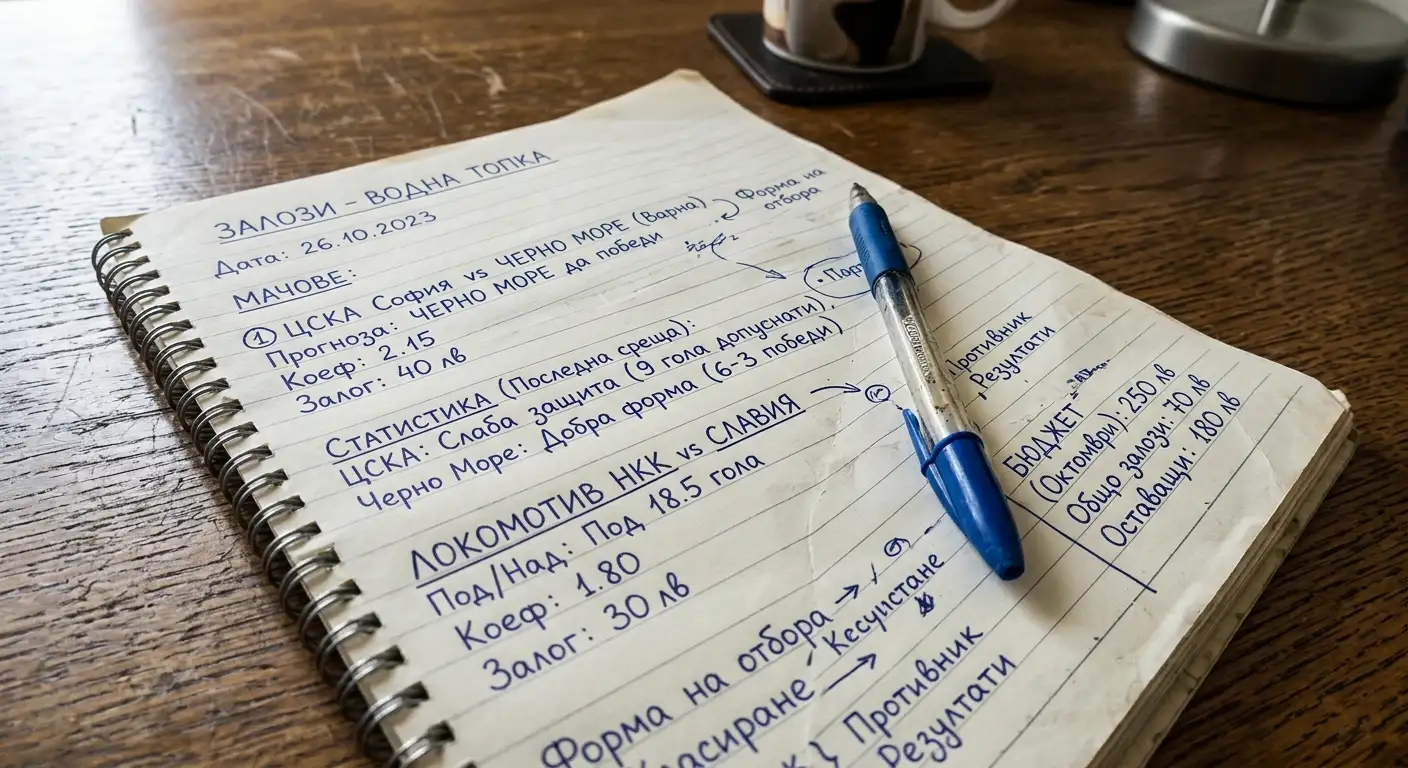 ЗАЛОЗИ - ВОДНА ТОПКА
Дата: 26.10.2023
МАЧОВЕ:
① ЦСКА София vs ЧЕРНО МОРЕ (Варна)
Форма на
отбора
Прогноза: ЧЕРНО МОРЕ да победи
Коеф: 2.15
Залог: 40 лв
СТАТИСТИКА (Последна среща):
ЦСКА: Слаба защита (9 гола допуснати),
Черно Море: Добра форма (6-3 победи)
Противник
Резултати
ЛОКОМОТИВ НКК vs СЛАВИЯ
Под/Над: Под 18.5 гола
Коеф: 1.80
Залог: 30 лв
БЮДЖЕТ
(Октомври): 250 лв
Общо залози: 70 лв
Оставащи: 180 лв
Форма на отбора →
Кесуистане
→
} Противник
Резултати